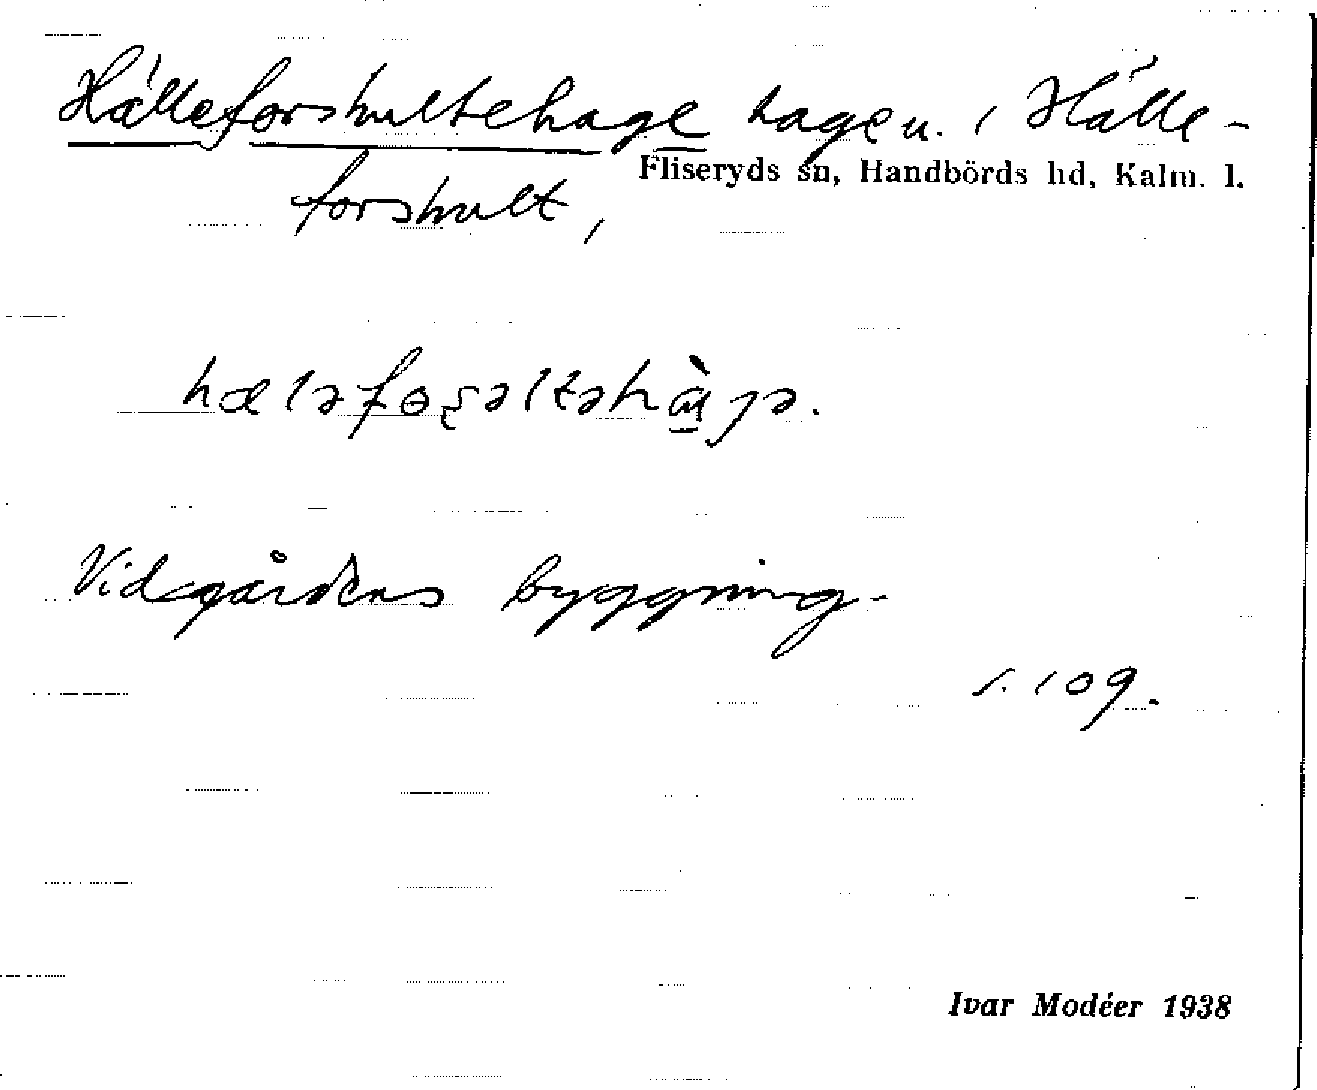 Hälleforshultehage hage u. i Hälle-
Fliseryds sn, Handbörds hd, Kalm. l.
forshult,
Vid gårdens byggning.
s. 109.
Ivar Modéer 1938